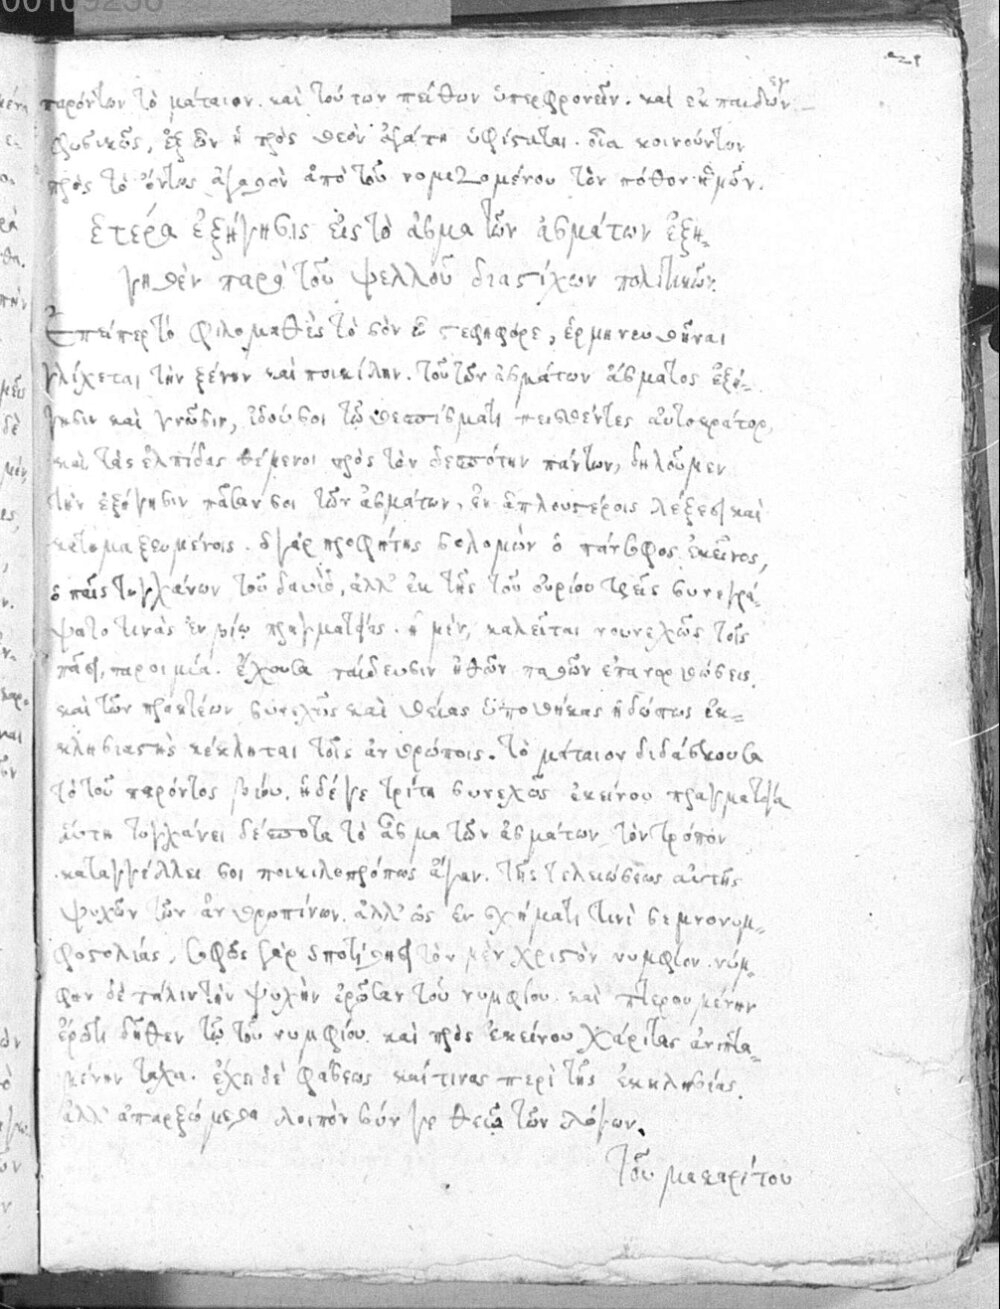 00109256
παρόντων τὸ μάταιον. καὶ τούτων πείθων ὑπερφρονεῖν. καὶ ἐκπαιδεύων
φυσικῶς, ἐξ ὧν ἡ πρὸς θεὸν ἀγάπη ὑφίσταται. διακοινούντων
πρὸς τὸ ὄντως ἀγαθὸν ἀπὸ τοῦ νομιζομένου τὸν πόθον ἡμῶν.
Ἑτέρα ἐξήγησις εἰς τὸ ἆσμα τῶν ἀσμάτων ἐξη-
γηθὲν παρὰ τοῦ ψελλοῦ διὰ στίχων πολιτικῶν.
Ἐπείπερ τὸ φιλομαθὲς τὸ σὸν ὦ στεφηφόρε, ἑρμηνευθῆναι
γλίχεται τὴν ξένην καὶ ποικίλην. τούτων ἀσμάτων ἄσματος ἐξή-
γησιν καὶ γνῶσιν, ἰδού σοι τῷ θεσπίσματι πεισθέντες αὐτοκράτορ,
καὶ τὰς ἐλπίδας θέμενοι πρὸς τὸν δεσπότην πάντων, δηλοῦμεν
τὴν ἐξήγησιν πᾶσαν σοι τῶν ἀσμάτων, ἐν ἁπλουστέροις λέξεσι καὶ
κατημαξευμένοις. ὁ γὰρ προφήτης σολομὼν ὁ πάνσοφος ἐκεῖνος,
ὁ παῖς τυγχάνων τοῦ δαυίδ, ἀλλ' ἐκ τῆς τοῦ οὐρίου τρεῖς συνεγρά-
ψατο τινὰς ἐν βίῳ πραγματείας. ἡ μὲν, καλεῖται νουνεχῶς τοῖς
πᾶσι, παροιμία. ἔχουσα παίδευσιν ἠθῶν παθῶν ἐπανορθώσεις
καὶ τῶν πρακτέων συνεχῶς καὶ θείας ὑποθήκας ἡδύπως ἐκ-
κλησιαστὴς κέκληται τοῖς ἀνθρώποις. τὸ μάταιον διδάσκουσα
τὸ τοῦ παρόντος βίου. ἡ δέ γε τρίτη συνεχῶς ἐκείνου πραγματεία
αὕτη τυγχάνει δέσποτα τὸ ἆσμα τῶν ἀσμάτων τὸν τρόπον
καταγγέλλει σοι ποικιλοτρόπως ἄγαν. τῆς τελειώσεως αὐτῆς
ψυχῶν τῶν ἀνθρωπίνων. ἀλλ' ὡς ἐν σχήματι τινὶ σεμνονυμ-
φοστολίας, σοφῶς γὰρ ὑποτίθησι τὸν μὲν χριστὸν νυμφίον. νύμ-
φην δὲ πάλιν τὴν ψυχὴν ἐρῶσαν τοῦ νυμφίου. καὶ πτερουμένην
ἔρωτι δῆθεν τῷ τοῦ νυμφίου. καὶ πρὸς ἐκείνου χάριτας ἀνιπτα-
μένην τάχα. ἔχει δὲ φάσεως καί τινας περὶ τῆς ἐκκλησίας.
ἀλλ' ἀπαρξώμεθα λοιπὸν σύν γε θεῷ τῶν λόγων.
Τοῦ μακαρίτου